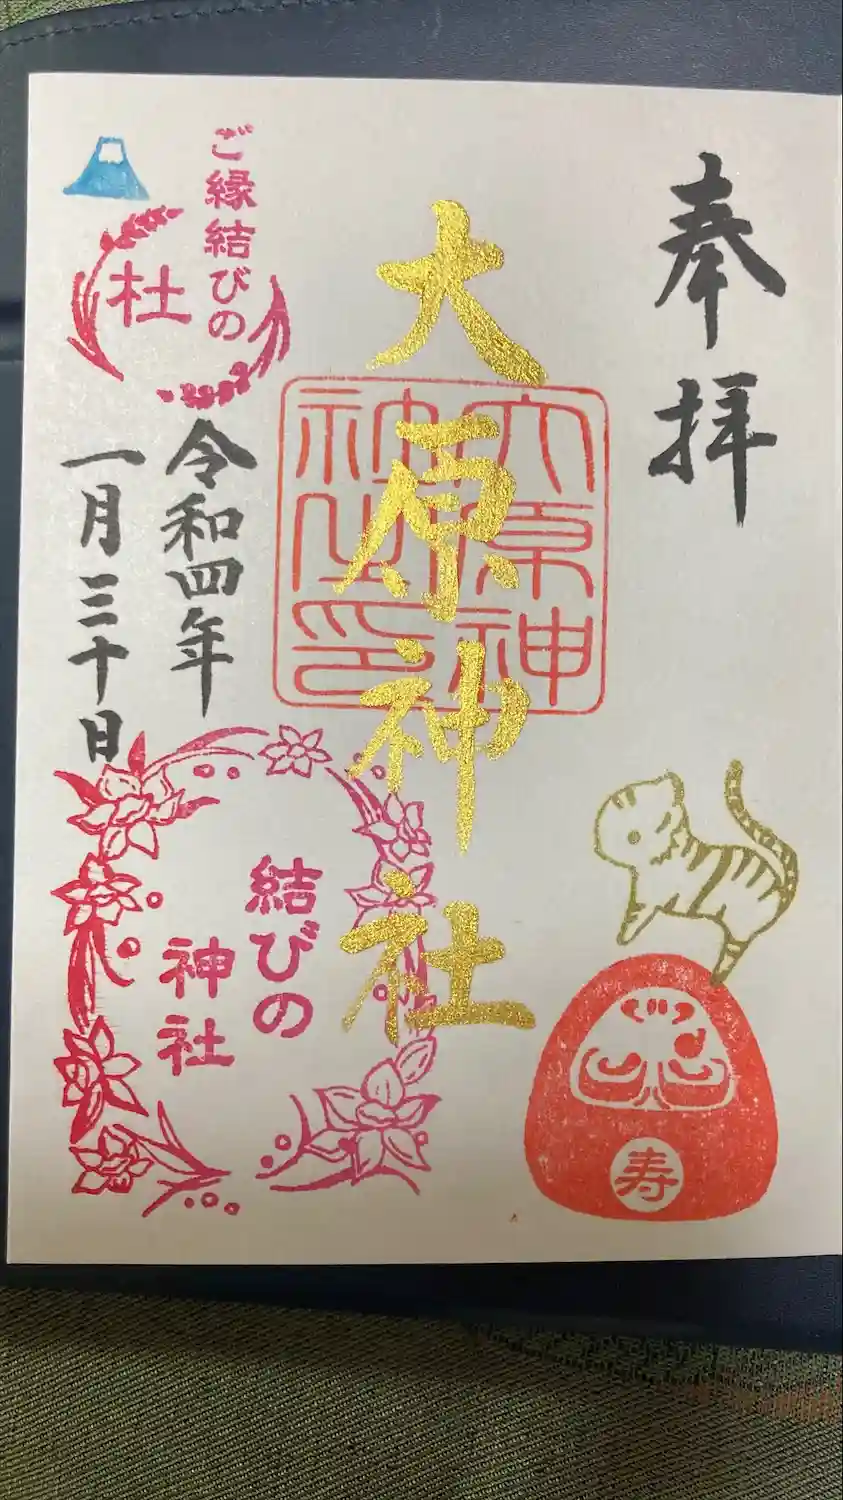 奉拝
大原神社
大原神
社之印
ご縁結びの
杜
令和四年
一月三十日
結びの
神社
寿